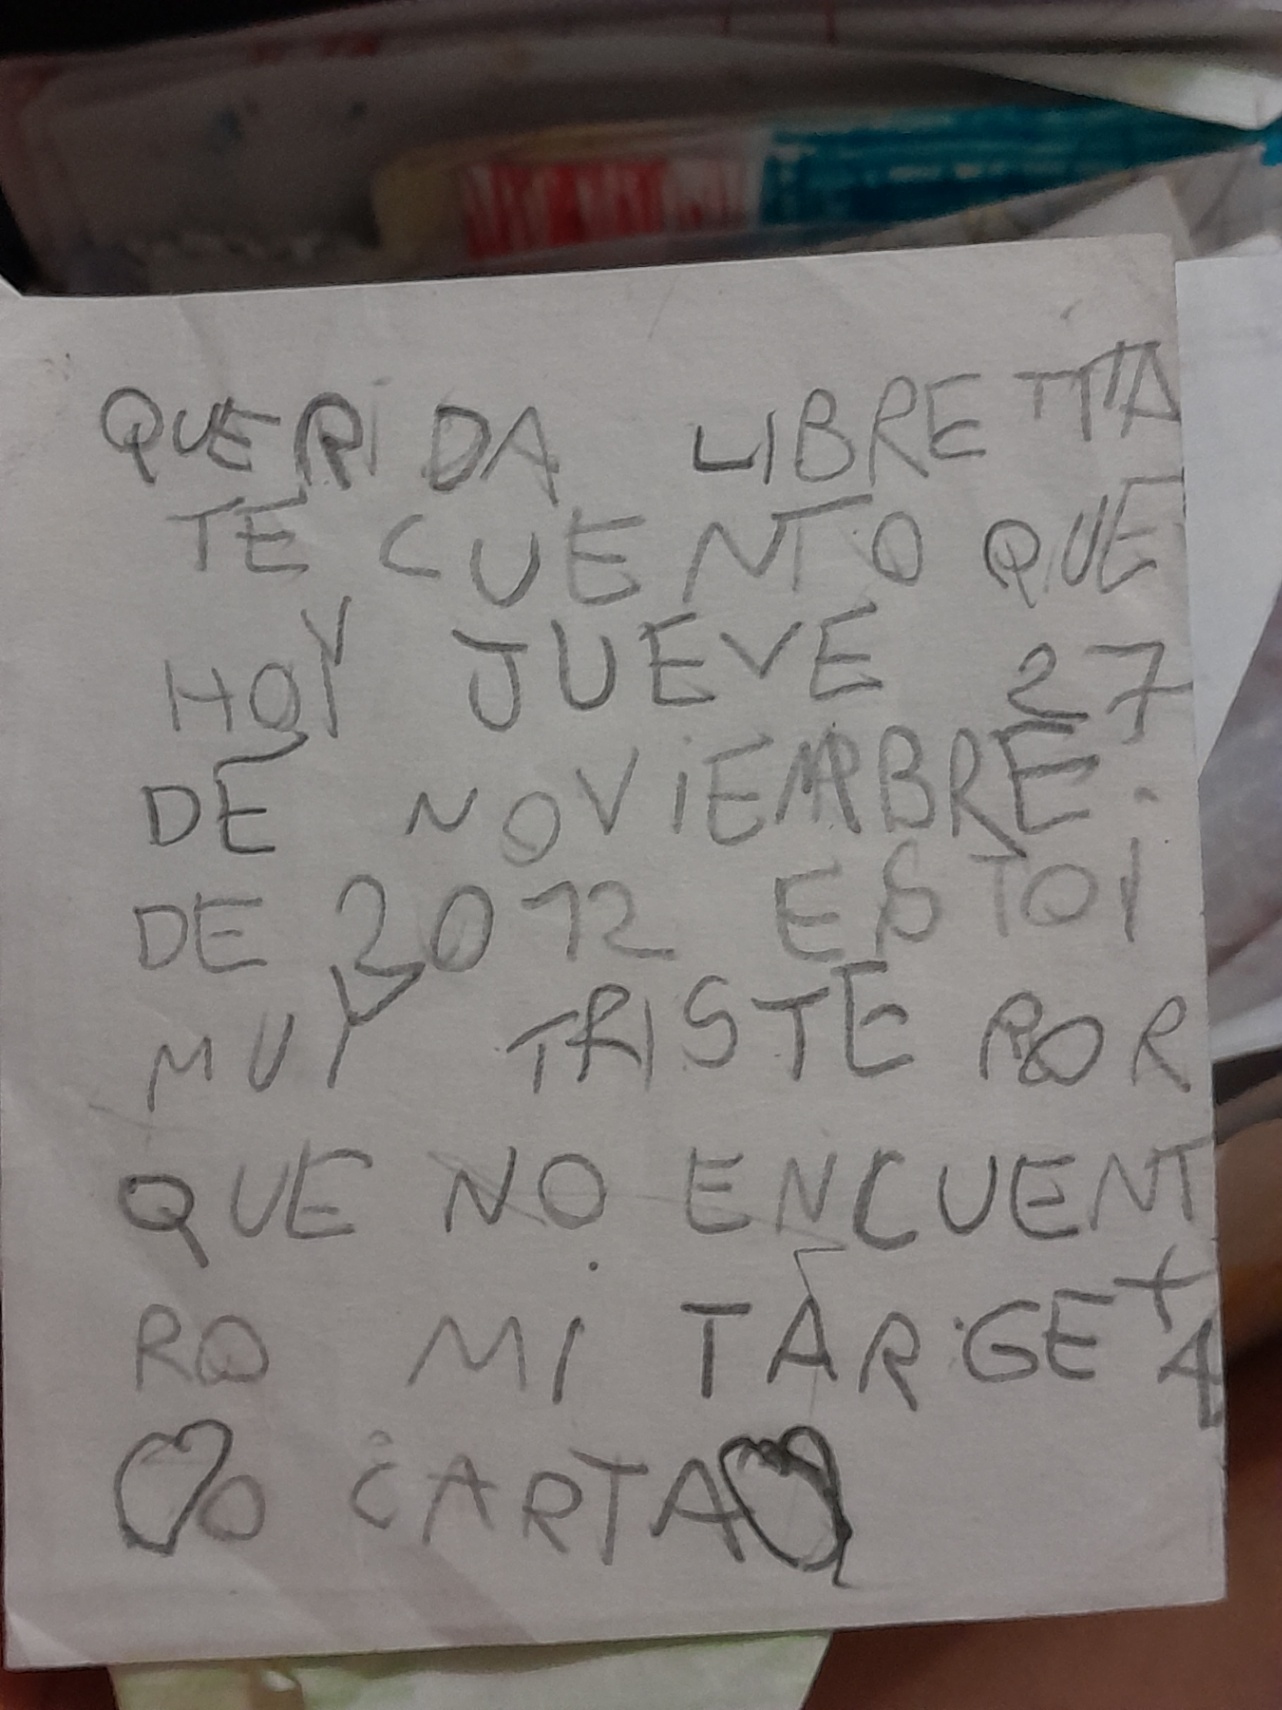 QUERIDA LIBRETTA
TE CUENTO QUE
HOY JUEVE 27
DE NOVIEMBRE.
DE 2012 ESTOI
MUY TRISTE POR
QUE NO ENCUENT
RO MI TARGETA
O CARTA